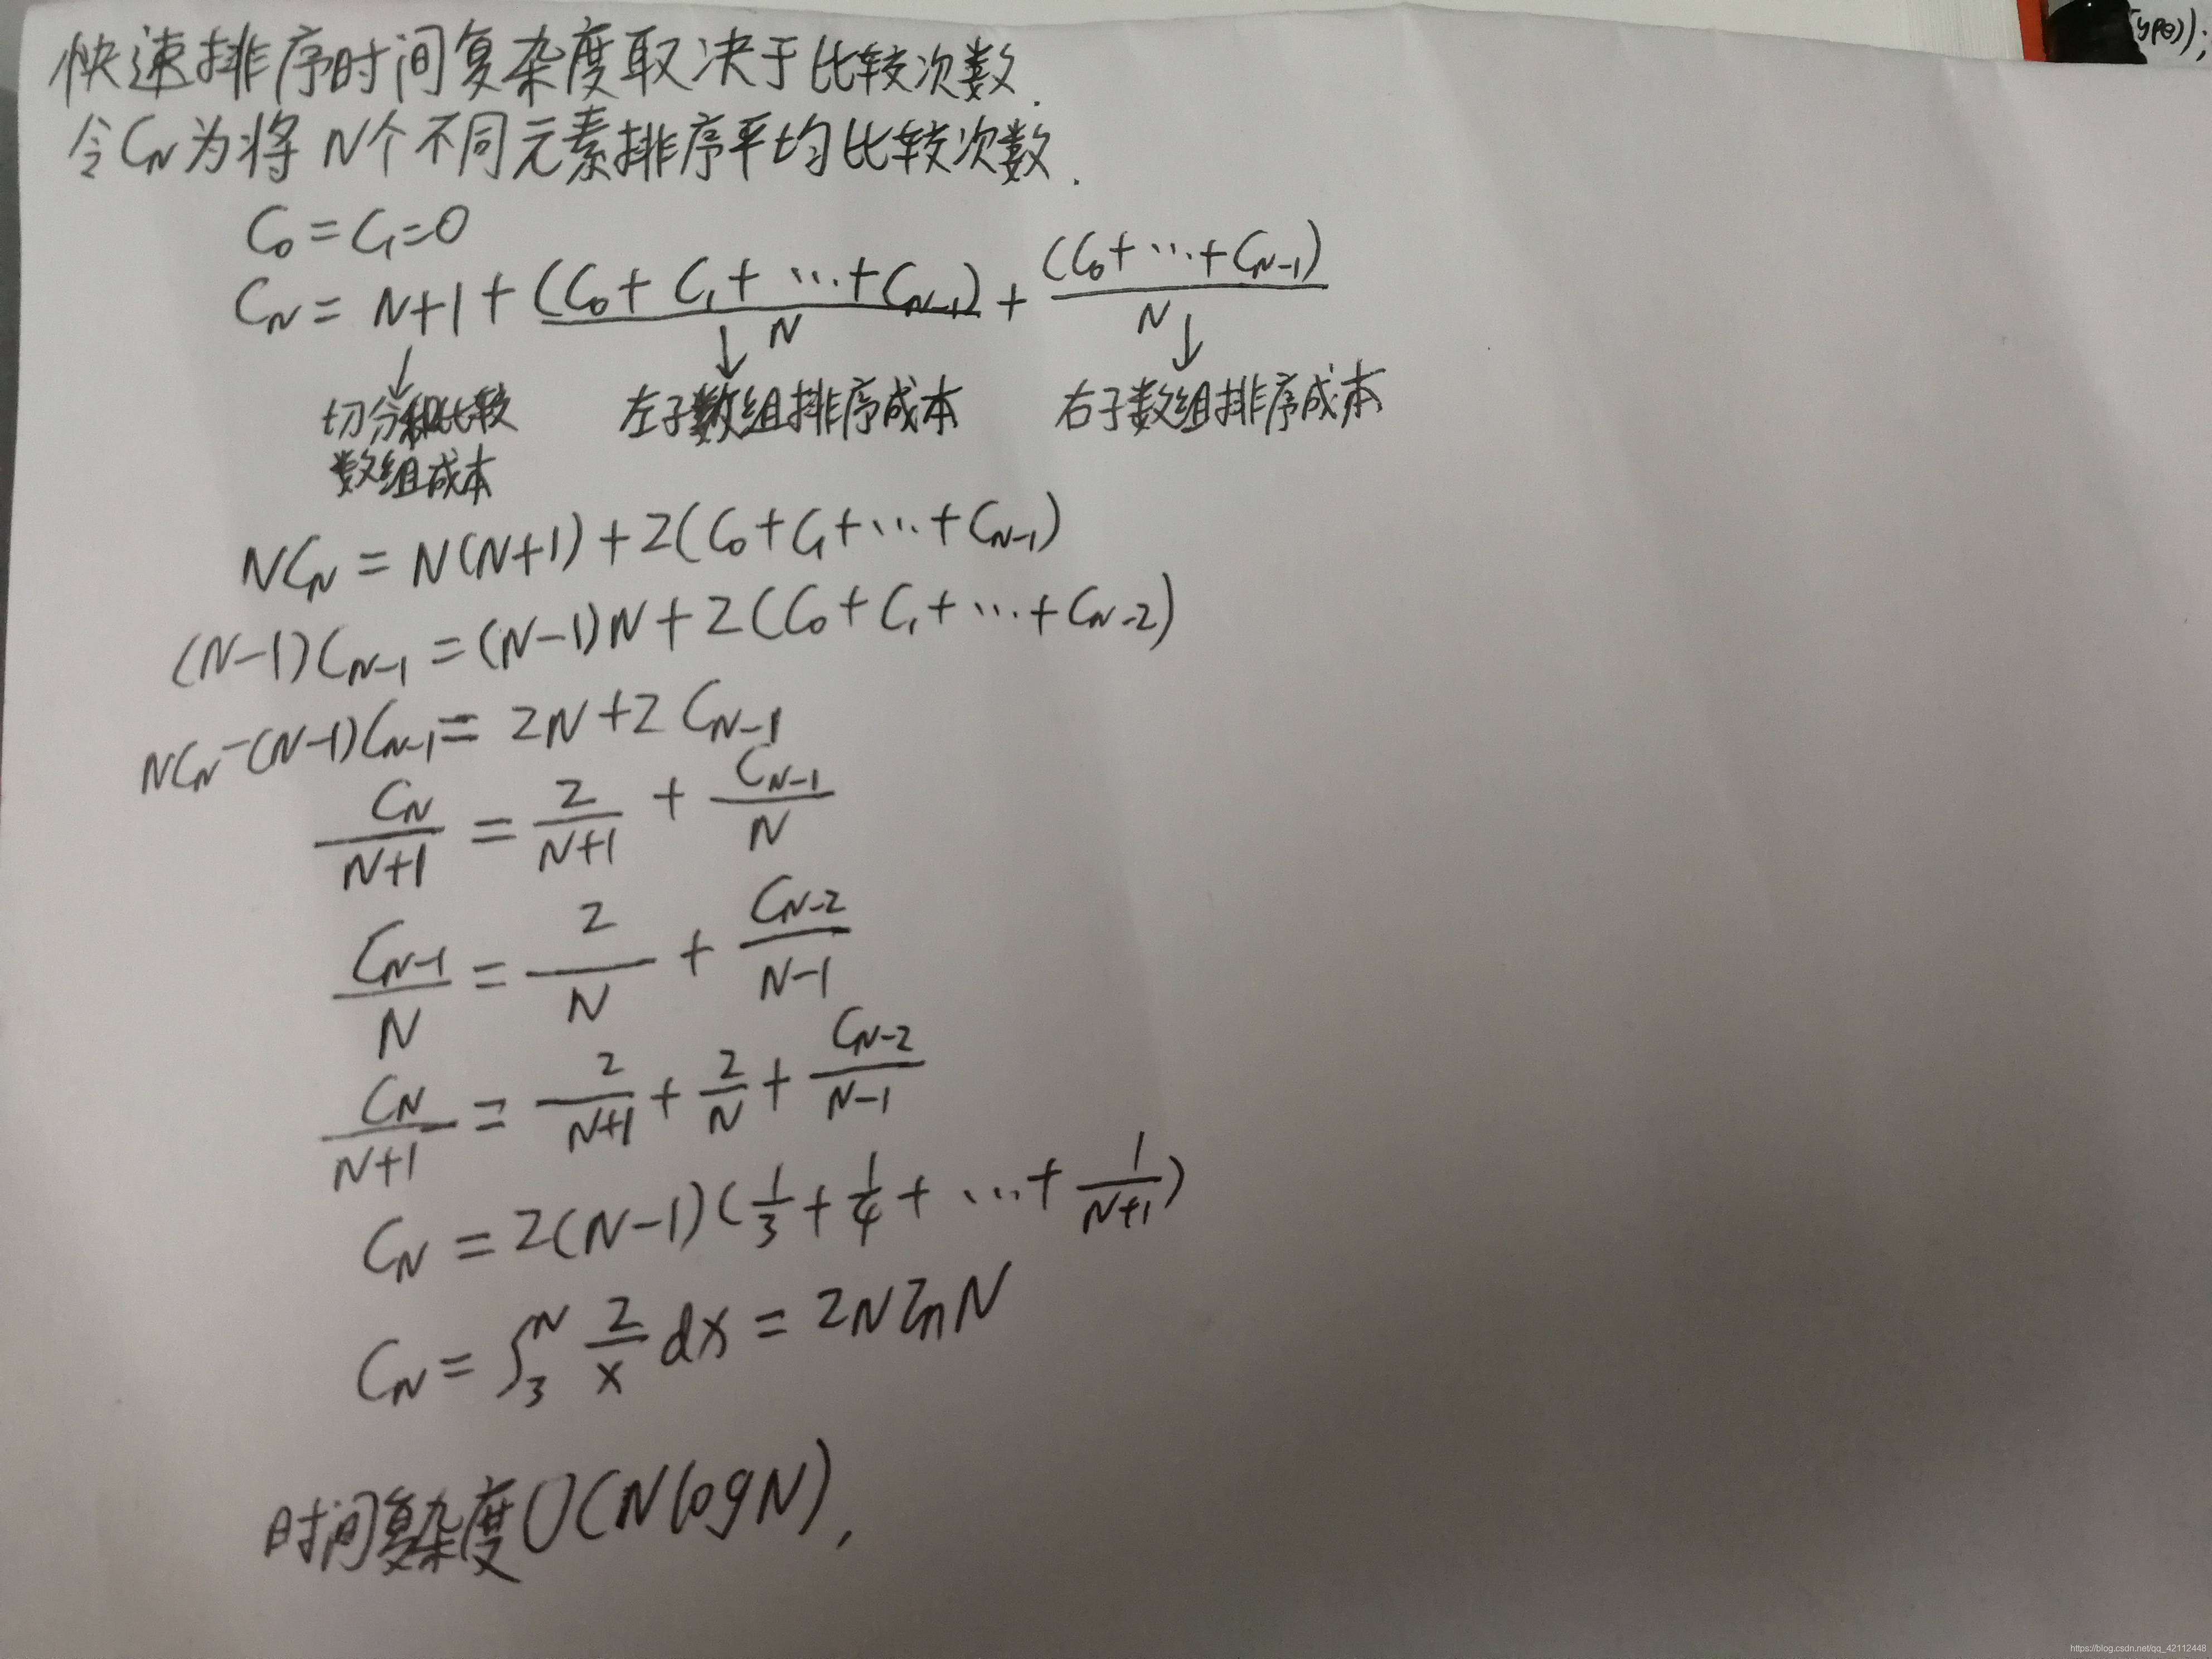 ype));
快速排序时间复杂度取决于比较次数.
令C_N为将N个不同元素排序平均比较次数.
C_0=C_1=0
C_N=N+1+(C_0+C_1+⋯+C_{N-1})/N+(C_0+⋯+C_{N-1})/N
↓ ↓ ↓
切分和比较 左子数组排序成本 右子数组排序成本
数组成本
NC_N=N(N+1)+2(C_0+C_1+⋯+C_{N-1})
(N-1)C_{N-1}=(N-1)N+2(C_0+C_1+⋯+C_{N-2})
NC_N-(N-1)C_{N-1}=2N+2C_{N-1}
C_N/(N+1)=2/(N+1)+C_{N-1}/N
C_{N-1}/N=2/N+C_{N-2}/(N-1)
C_N/(N+1)=2/(N+1)+2/N+C_{N-2}/(N-1)
C_N=2(N-1)(1/3+1/4+⋯+1/(N+1))
C_N=∫_3^N 2/x dx=2NlnN
时间复杂度O(NlogN),
https://blog.csdn.net/qq_42112448